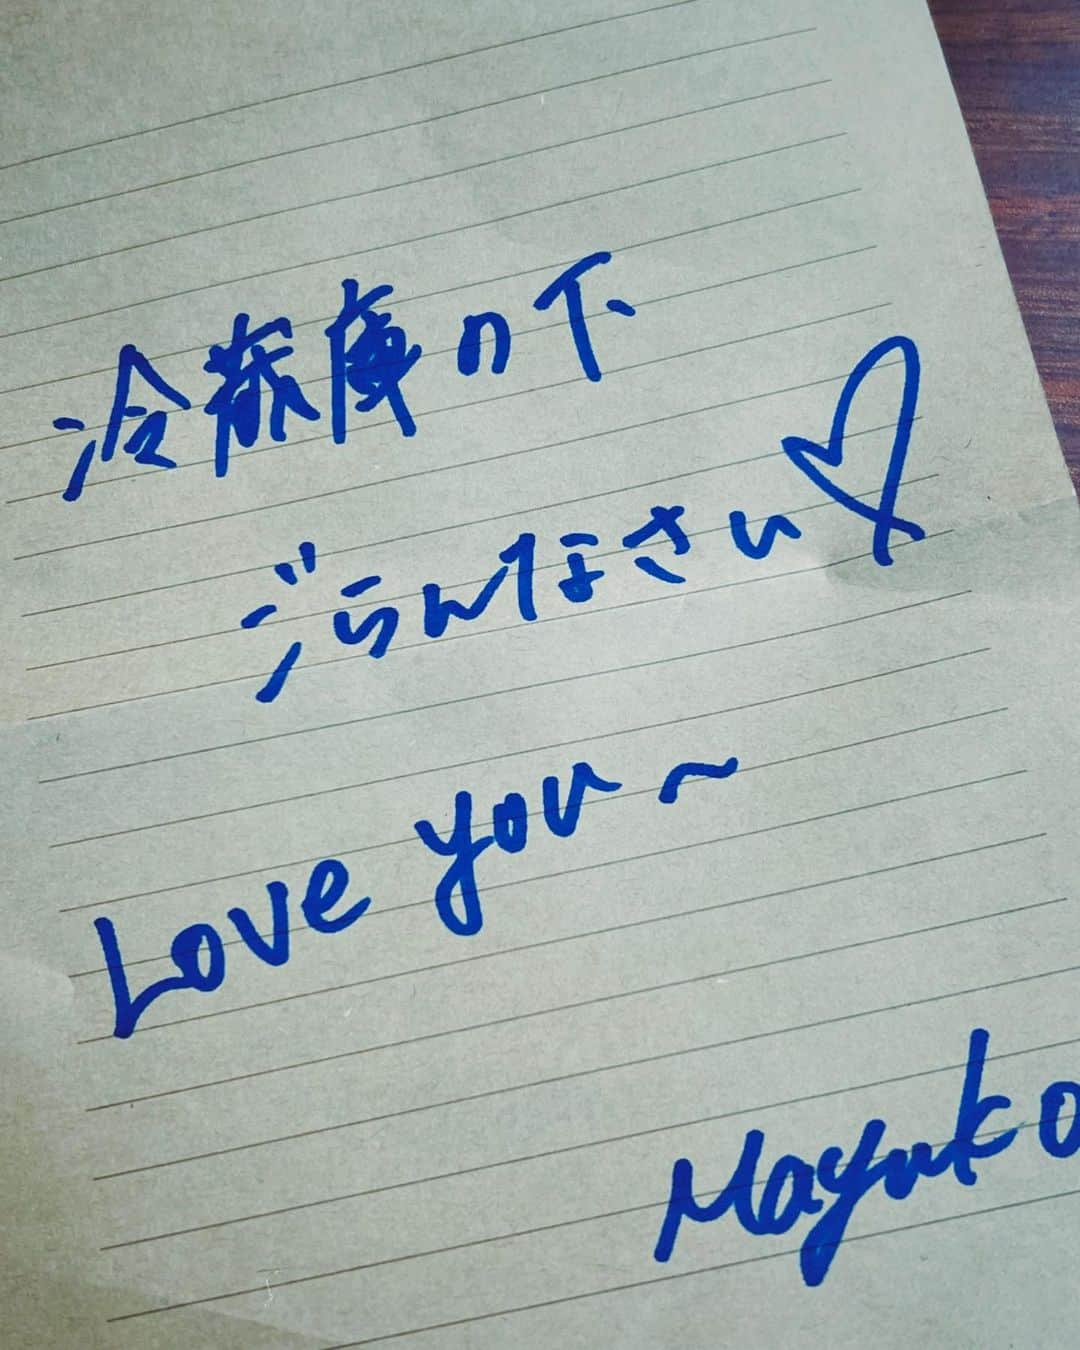 冷蔵庫の下
ごらんなさい♡
Love you～
Mayuko